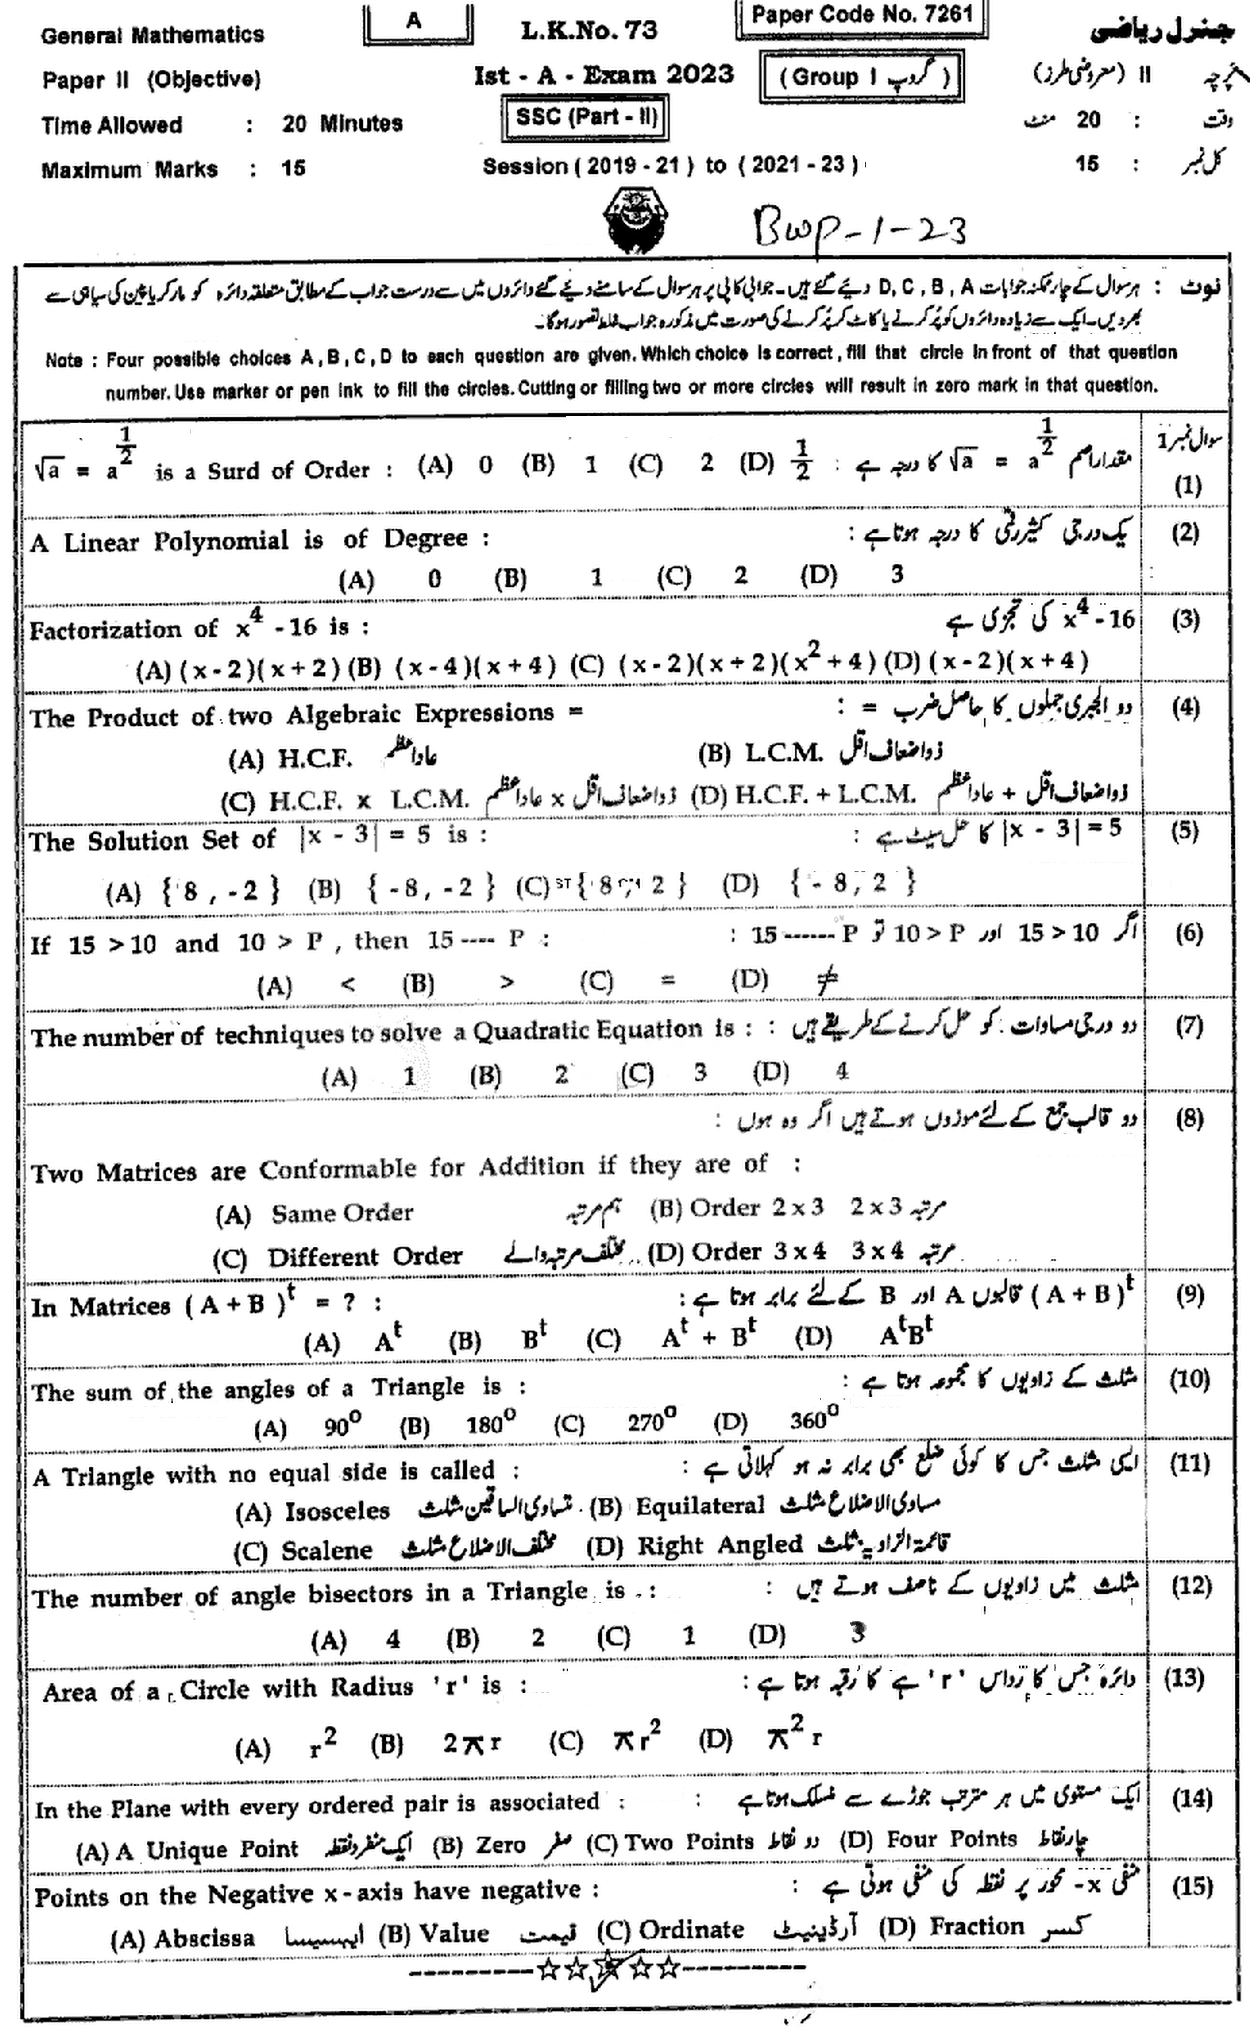 General Mathematics A L.K.No. 73 Paper Code No. 7261 جنرل ریاضی
Paper II (Objective) Ist - A - Exam 2023 (Group I گروپ) پرچہ II (معروضی طرز)
Time Allowed : 20 Minutes SSC (Part - II) وقت : 20 منٹ
Maximum Marks : 15 Session ( 2019 - 21 ) to ( 2021 - 23 ) کل نمبر : 15
BWP-1-23
نوٹ : ہر سوال کے چار ممکنہ جوابات D , C , B , A دیئے گئے ہیں۔ جوابی کاپی پر ہر سوال کے سامنے دیئے گئے دائروں میں سے درست جواب کے مطابق متعلقہ دائرہ کو مارکر یا پین کی سیاہی سے
بھر دیں۔ ایک سے زیادہ دائروں کو پُر کرنے یا کاٹ کر پُر کرنے کی صورت میں مذکورہ جواب غلط تصور ہوگا۔
Note : Four possible choices A , B , C , D to each question are given. Which choice is correct , fill that circle in front of that question
number. Use marker or pen ink to fill the circles. Cutting or filling two or more circles will result in zero mark in that question.
سوال نمبر 1
√a = a^1/2 is a Surd of Order : (A) 0 (B) 1 (C) 2 (D) 1/2 : مقدار اصم √a = a^1/2 کا درجہ ہے (1)
A Linear Polynomial is of Degree : یک درجی کثیر رقمی کا درجہ ہوتا ہے : (2)
(A) 0 (B) 1 (C) 2 (D) 3
Factorization of x⁴ - 16 is : x⁴ - 16 کی تجزی ہے (3)
(A) ( x - 2 )( x + 2 ) (B) ( x - 4 )( x + 4 ) (C) ( x - 2 )( x + 2 )( x² + 4 ) (D) ( x - 2 )( x + 4 )
The Product of two Algebraic Expressions = دو الجبری جملوں کا حاصل ضرب = : (4)
(A) H.C.F. عاد اعظم (B) L.C.M. ذو اضعاف اقل
(C) H.C.F. x L.C.M. ذو اضعاف اقل x عاد اعظم (D) H.C.F. + L.C.M. ذو اضعاف اقل + عاد اعظم
The Solution Set of |x - 3| = 5 is : |x - 3| = 5 کا حل سیٹ ہے : (5)
(A) { 8 , -2 } (B) { -8 , -2 } (C) { 8 , 2 } (D) { - 8 , 2 }
If 15 > 10 and 10 > P , then 15 ---- P : اگر 15 > 10 اور 10 > P تو 15 ------ P : (6)
(A) < (B) > (C) = (D) ≠
The number of techniques to solve a Quadratic Equation is : دو درجی مساوات کو حل کرنے کے طریقے ہیں : (7)
(A) 1 (B) 2 (C) 3 (D) 4
دو قالب جمع کے لئے موزوں ہوتے ہیں اگر وہ ہوں : (8)
Two Matrices are Conformable for Addition if they are of :
(A) Same Order ہم مرتبہ (B) Order 2 x 3 مرتبہ 2 x 3
(C) Different Order مختلف مرتبہ والے (D) Order 3 x 4 مرتبہ 3 x 4
In Matrices ( A + B )ᵗ = ? : ( A + B )ᵗ قالبوں A اور B کے لئے برابر ہوتا ہے : (9)
(A) Aᵗ (B) Bᵗ (C) Aᵗ + Bᵗ (D) AᵗBᵗ
The sum of the angles of a Triangle is : مثلث کے زاویوں کا مجموعہ ہوتا ہے : (10)
(A) 90° (B) 180° (C) 270° (D) 360°
A Triangle with no equal side is called : ایسی مثلث جس کا کوئی ضلع بھی برابر نہ ہو کہلاتی ہے : (11)
(A) Isosceles متساوی الساقین مثلث (B) Equilateral مساوی الاضلاع مثلث
(C) Scalene مختلف الاضلاع مثلث (D) Right Angled قائمۃ الزاویہ مثلث
The number of angle bisectors in a Triangle is : مثلث میں زاویوں کے ناصف ہوتے ہیں : (12)
(A) 4 (B) 2 (C) 1 (D) 3
Area of a Circle with Radius 'r' is : دائرہ جس کا رداس 'r' ہے کا رقبہ ہوتا ہے : (13)
(A) r² (B) 2πr (C) πr² (D) π²r
In the Plane with every ordered pair is associated : ایک مستوی میں ہر مترتب جوڑے سے منسلک ہوتا ہے : (14)
(A) A Unique Point ایک منفرد نقطہ (B) Zero صفر (C) Two Points دو نقاط (D) Four Points چار نقاط
Points on the Negative x - axis have negative : منفی x- محور پر نقطہ کی منفی ہوتی ہے : (15)
(A) Abscissa ایبسیسا (B) Value قیمت (C) Ordinate آرڈینیٹ (D) Fraction کسر